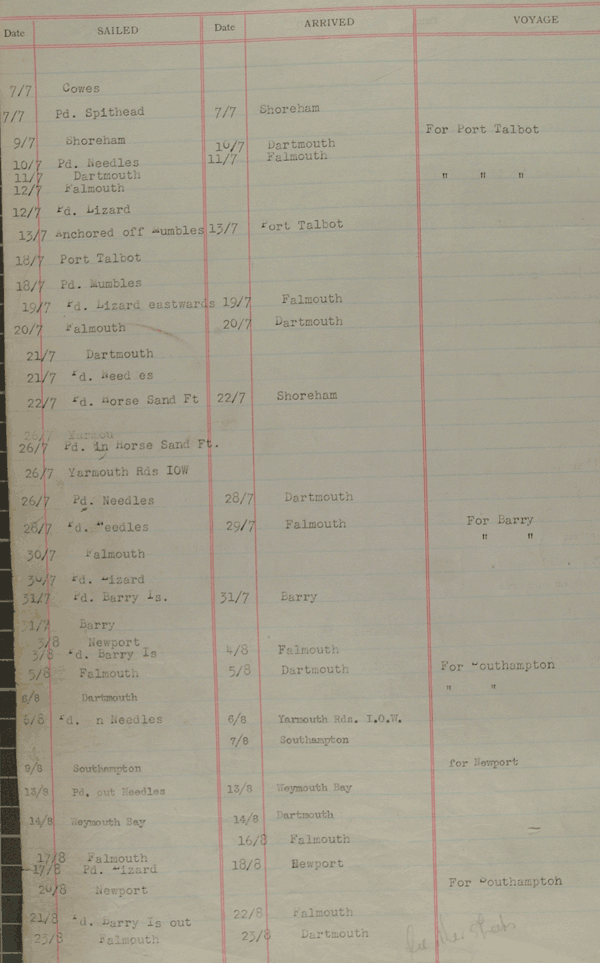 Date SAILED Date ARRIVED VOYAGE
7/7 Cowes
7/7 Pd. Spithead 7/7 Shoreham
For Port Talbot
9/7 Shoreham 10/7 Dartmouth
10/7 Pd. Needles 11/7 Falmouth
11/7 Dartmouth " " "
12/7 Falmouth
12/7 Pd. Lizard
13/7 Anchored off Mumbles 13/7 Port Talbot
18/7 Port Talbot
18/7 Pd. Mumbles
19/7 Pd. Lizard eastwards 19/7 Falmouth
20/7 Falmouth 20/7 Dartmouth
21/7 Dartmouth
21/7 Pd. Need es
22/7 Pd. Horse Sand Ft 22/7 Shoreham
26/7 Yarmou
26/7 Pd. in Horse Sand Ft.
26/7 Yarmouth Rds IOW
26/7 Pd. Needles 28/7 Dartmouth
28/7 Pd. Needles 29/7 Falmouth For Barry
" "
30/7 Falmouth
30/7 Pd. Lizard
31/7 Pd. Barry Is. 31/7 Barry
31/7 Barry
3/8 Newport
3/8 Pd. Barry Is 4/8 Falmouth
5/8 Falmouth 5/8 Dartmouth For Southampton
6/8 Dartmouth " "
6/8 Pd. n Needles 6/8 Yarmouth Rds. I.O.W.
7/8 Southampton
9/8 Southampton for Newport
13/8 Pd. out Needles 13/8 Weymouth Bay
14/8 Weymouth Bay 14/8 Dartmouth
16/8 Falmouth
17/8 Falmouth
17/8 Pd. Lizard 18/8 Newport
20/8 Newport For Southampton
21/8 Pd. Barry Is out 22/8 Falmouth
23/8 Falmouth 23/8 Dartmouth